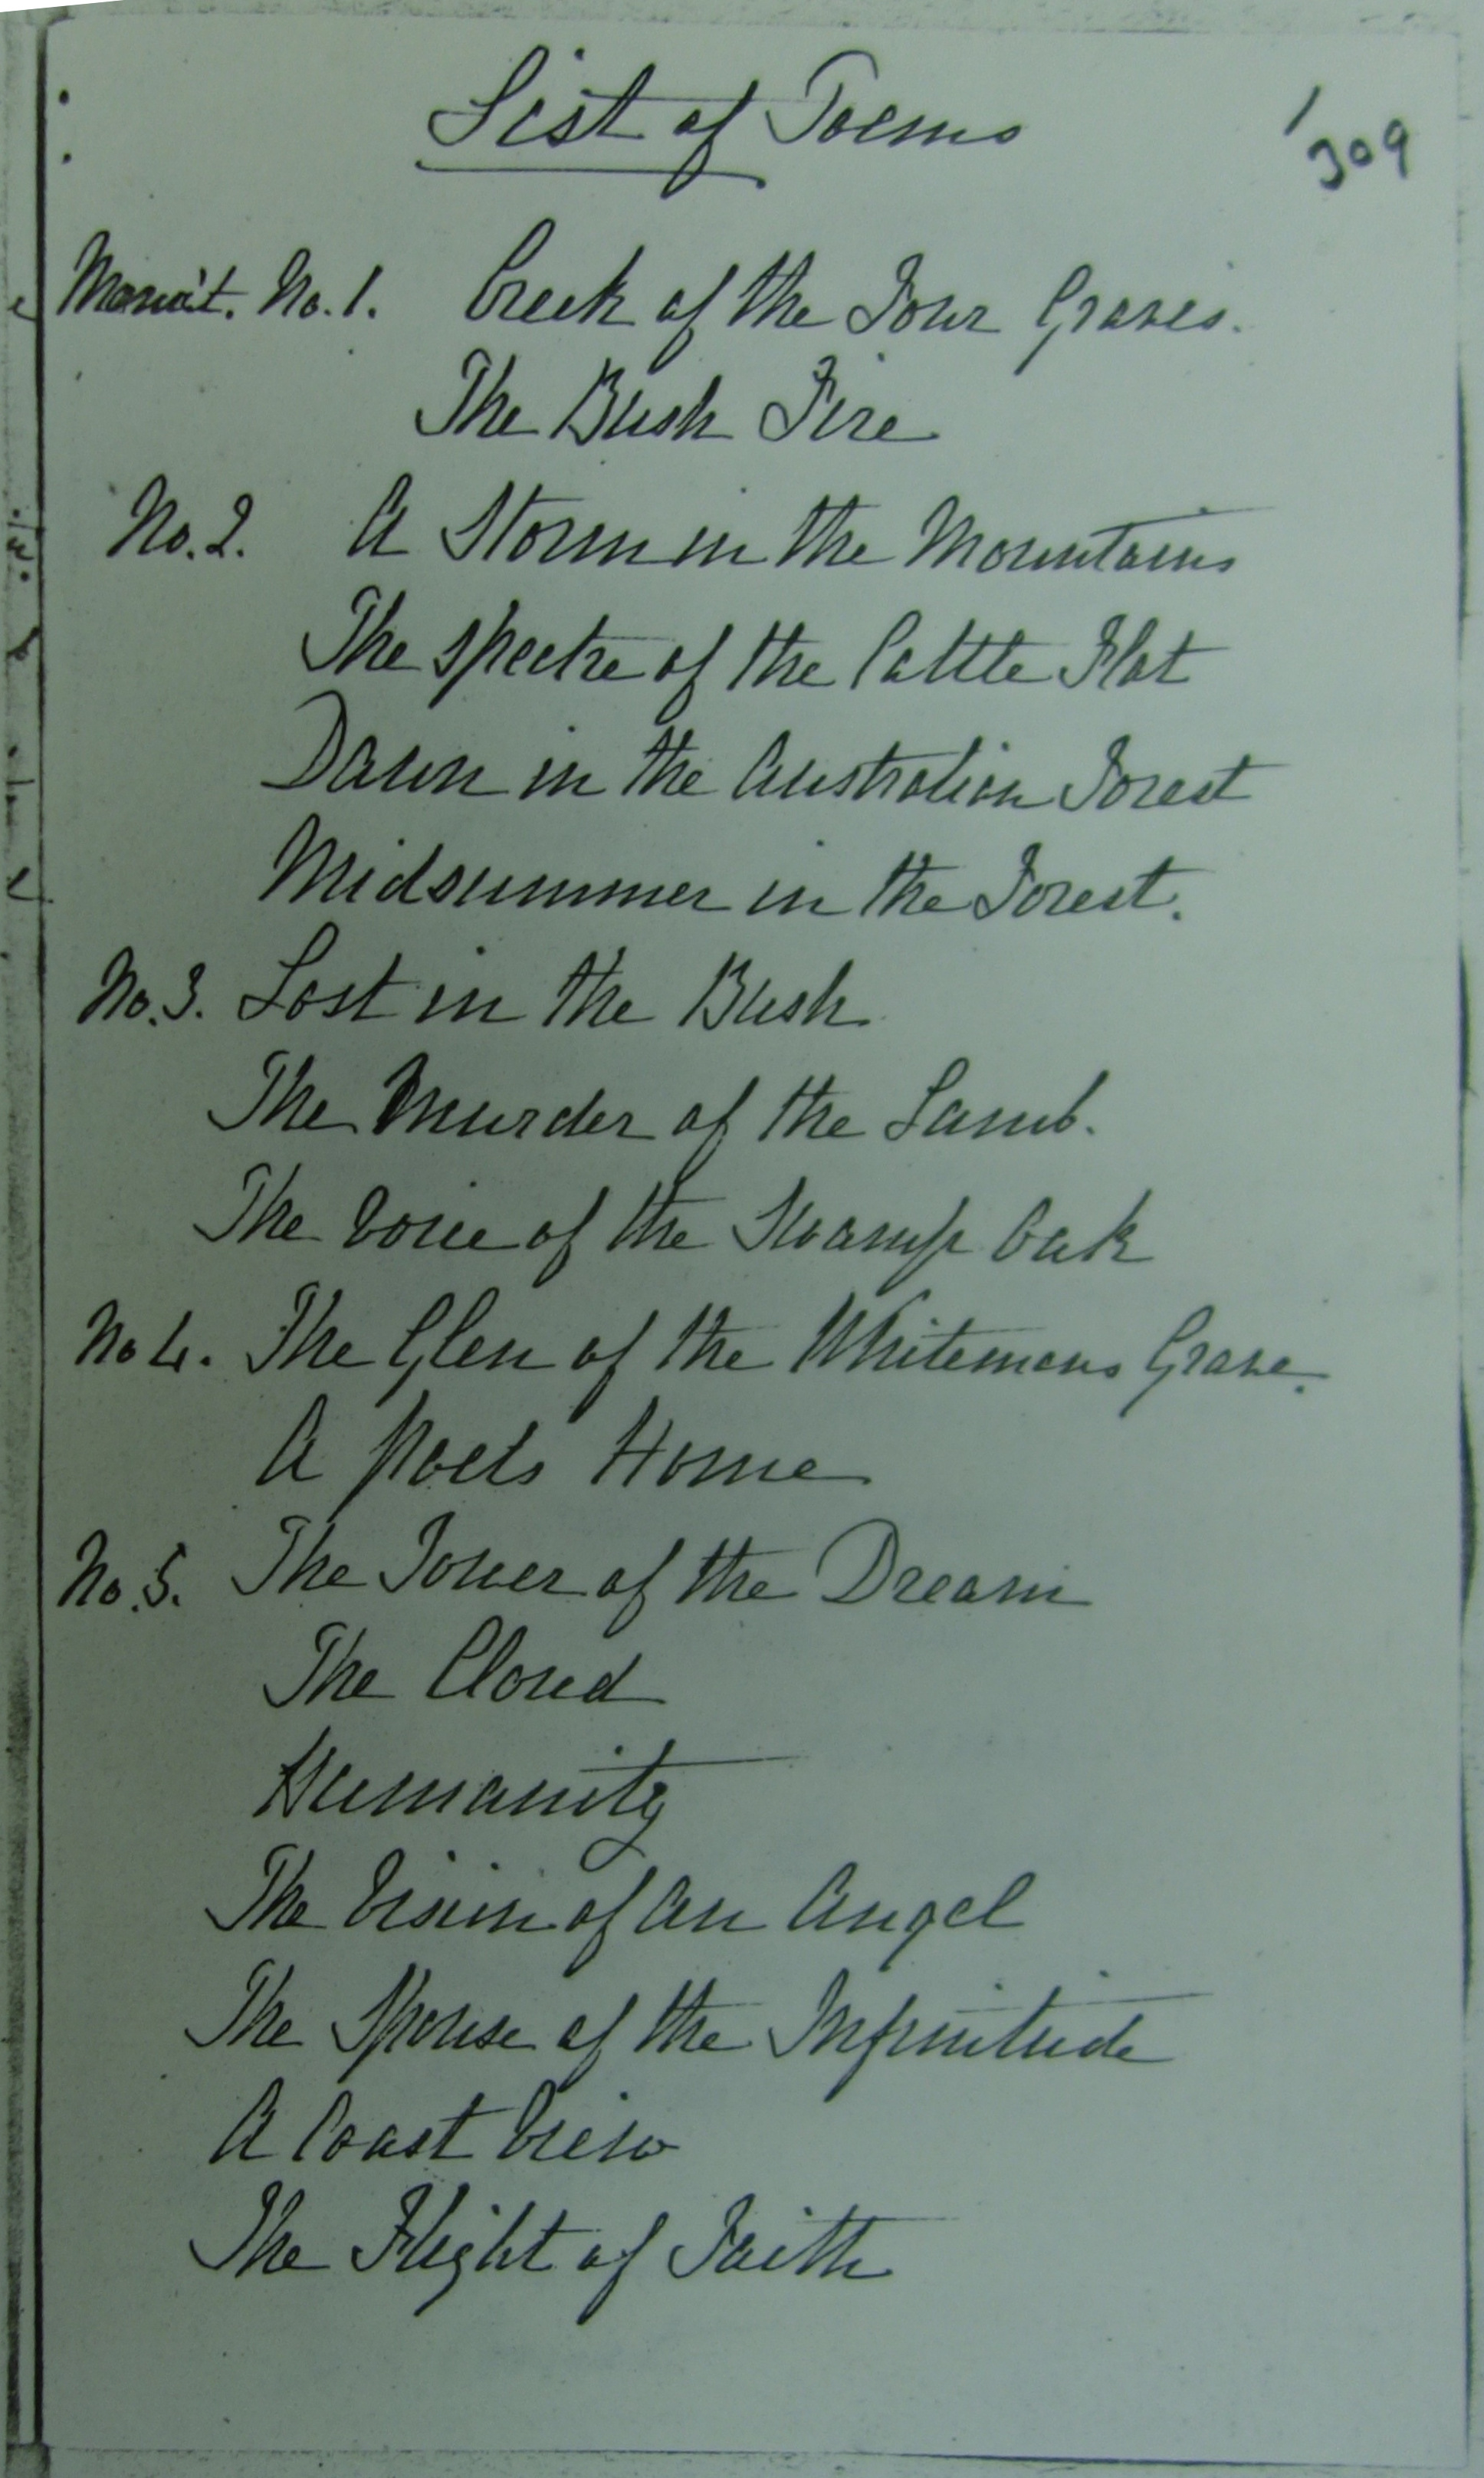 List of Poems
309
No. 1. Creek of the Four Graves.
The Bush Fire
No. 2. A Storm in the Mountains
The spectre of the Cattle Flat
Dawn in the Australian Forest
Midsummer in the Forest.
No. 3. Lost in the Bush
The Murder of the Lamb.
The Voice of the Swamp Oak
No 4. The Glen of the Whitemans Grave.
A Poets Home
No. 5. The Tower of the Dream
The Cloud
Humanity
The Vision of an Angel
The Spouse of the Infinitude
A Coast View
The Flight of Faith